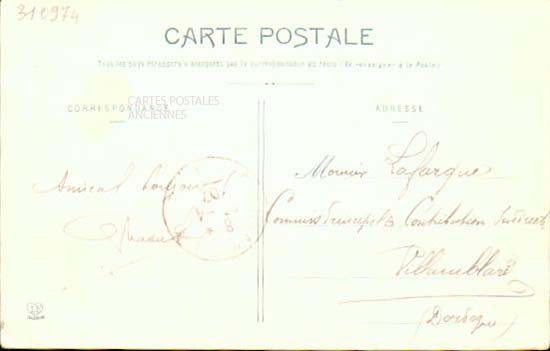 310974
CARTE POSTALE
Tous les pays étrangers n'acceptent pas la correspondance au recto (Se renseigner à la Poste)
CORRESPONDANCE
CARTES POSTALES
ANCIENNES
ADRESSE
Amical bonjour
Monsieur Lafargue
Commis Principal Contributions Indirectes
Villamblard
(Dordogne)